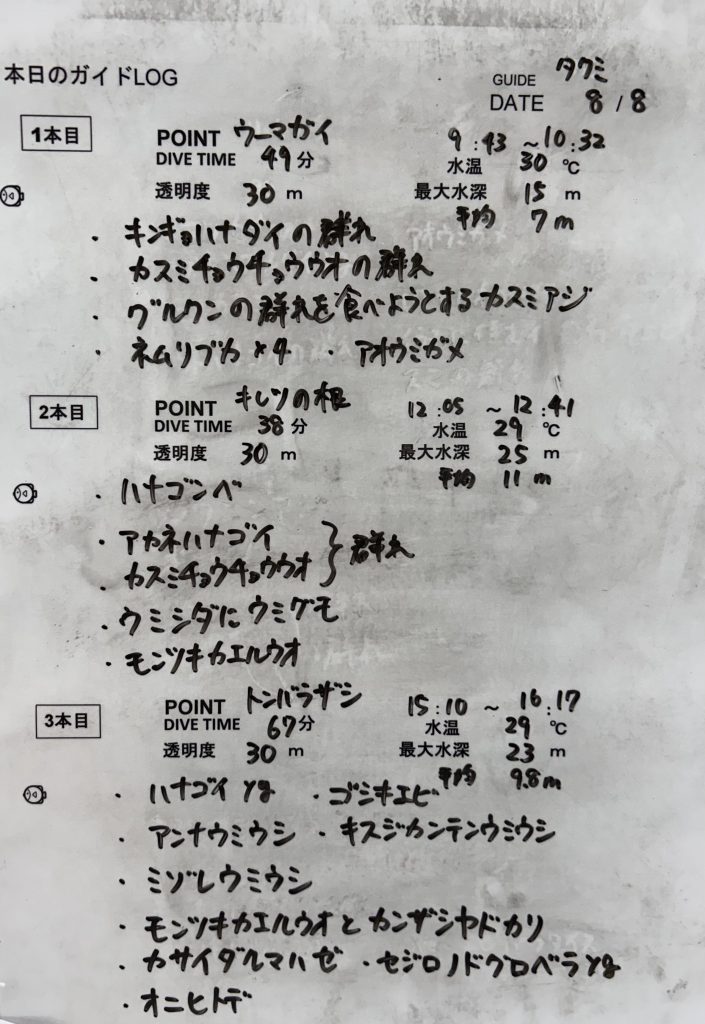 本日のガイドLOG
GUIDE タクミ
DATE 8/8
1本目 POINT ウーマガイ 9:43 ~10:32
DIVE TIME 49分 水温 30 ℃
透明度 30 m 最大水深 15 m
平均 7m
・キンギョハナダイの群れ
・カスミチョウチョウウオの群れ
・グルクンの群れを食べようとするカスミアジ
・ネムリブカ×4 ・アオウミガメ
2本目 POINT キレツの根 12:05 ~12:41
DIVE TIME 38分 水温 29 ℃
透明度 30 m 最大水深 25 m
平均 11 m
・ハナゴンベ
・アカネハナゴイ
・カスミチョウチョウウオ } 群れ
・ウミシダにウミグモ
・モンツキカエルウオ
3本目 POINT トンバラザシ 15:10 ~ 16:17
DIVE TIME 67分 水温 29 ℃
透明度 30 m 最大水深 23 m
平均 9.8m
・ハナゴイ yg ・ゴシキエビ
・アンナウミウシ ・キスジカンテンウミウシ
・ミゾレウミウシ
・モンツキカエルウオとカンザシヤドカリ
・カサイダルマハゼ ・セジロノドグロベラyg
・オニヒトデ